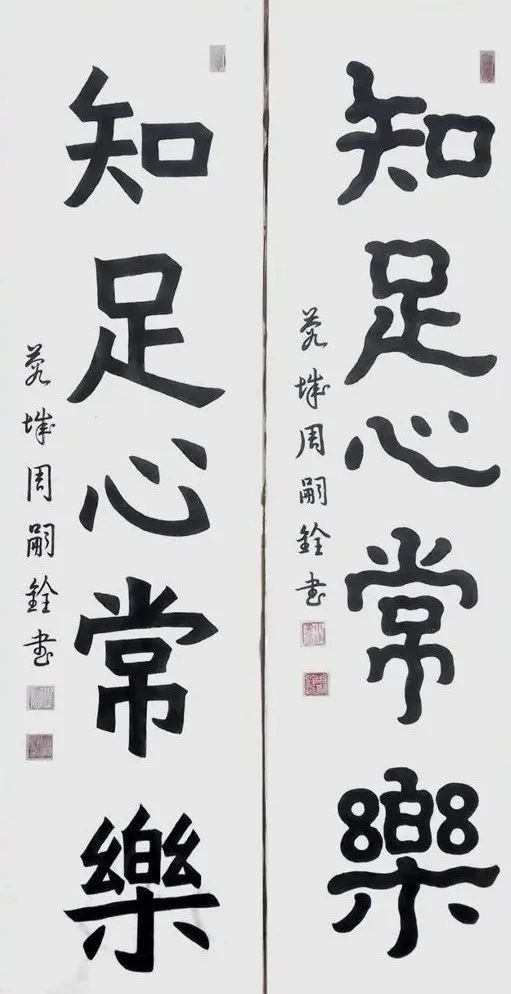 知足心常樂
蓉城周嗣銓书
知足心常樂
蓉城周嗣銓书